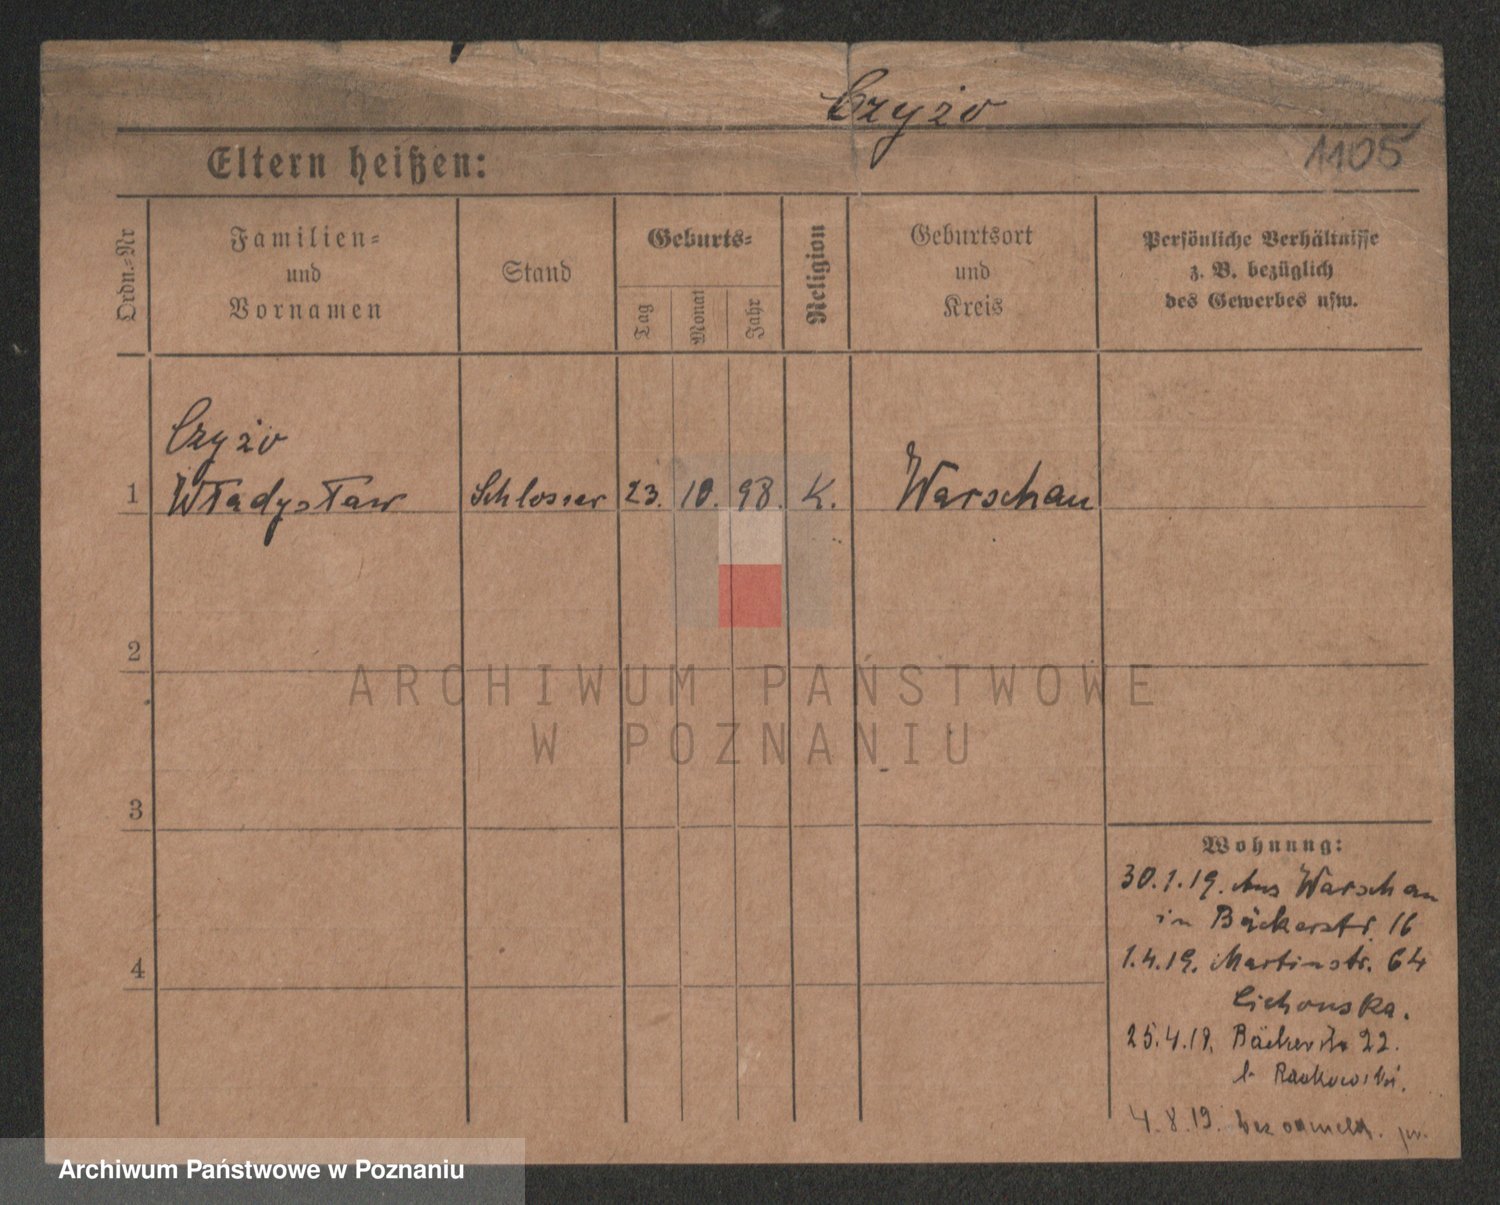 Czyżo
Eltern heißen:
1105
Ordn.=Nr
Familien=
und
Vornamen
Stand
Geburts=
Tag
Monat
Jahr
Religion
Geburtsort
und
Kreis
Persönliche Verhältnisse
z. B. bezüglich
des Gewerbes usw.
Czyżo
1 Władysław Schlosser 23. 10. 98. K. Warschau
2
ARCHIWUM PAŃSTWOWE
W POZNANIU
3
Wohnung:
30.1.19. Aus Warschau
in Bäckerstr. 16
4
1.4.19. Martinstr. 64
Cichonska.
25.4.19. Bäckerstr 22.
b. Rackowski.
4.8.19.
Archiwum Państwowe w Poznaniu